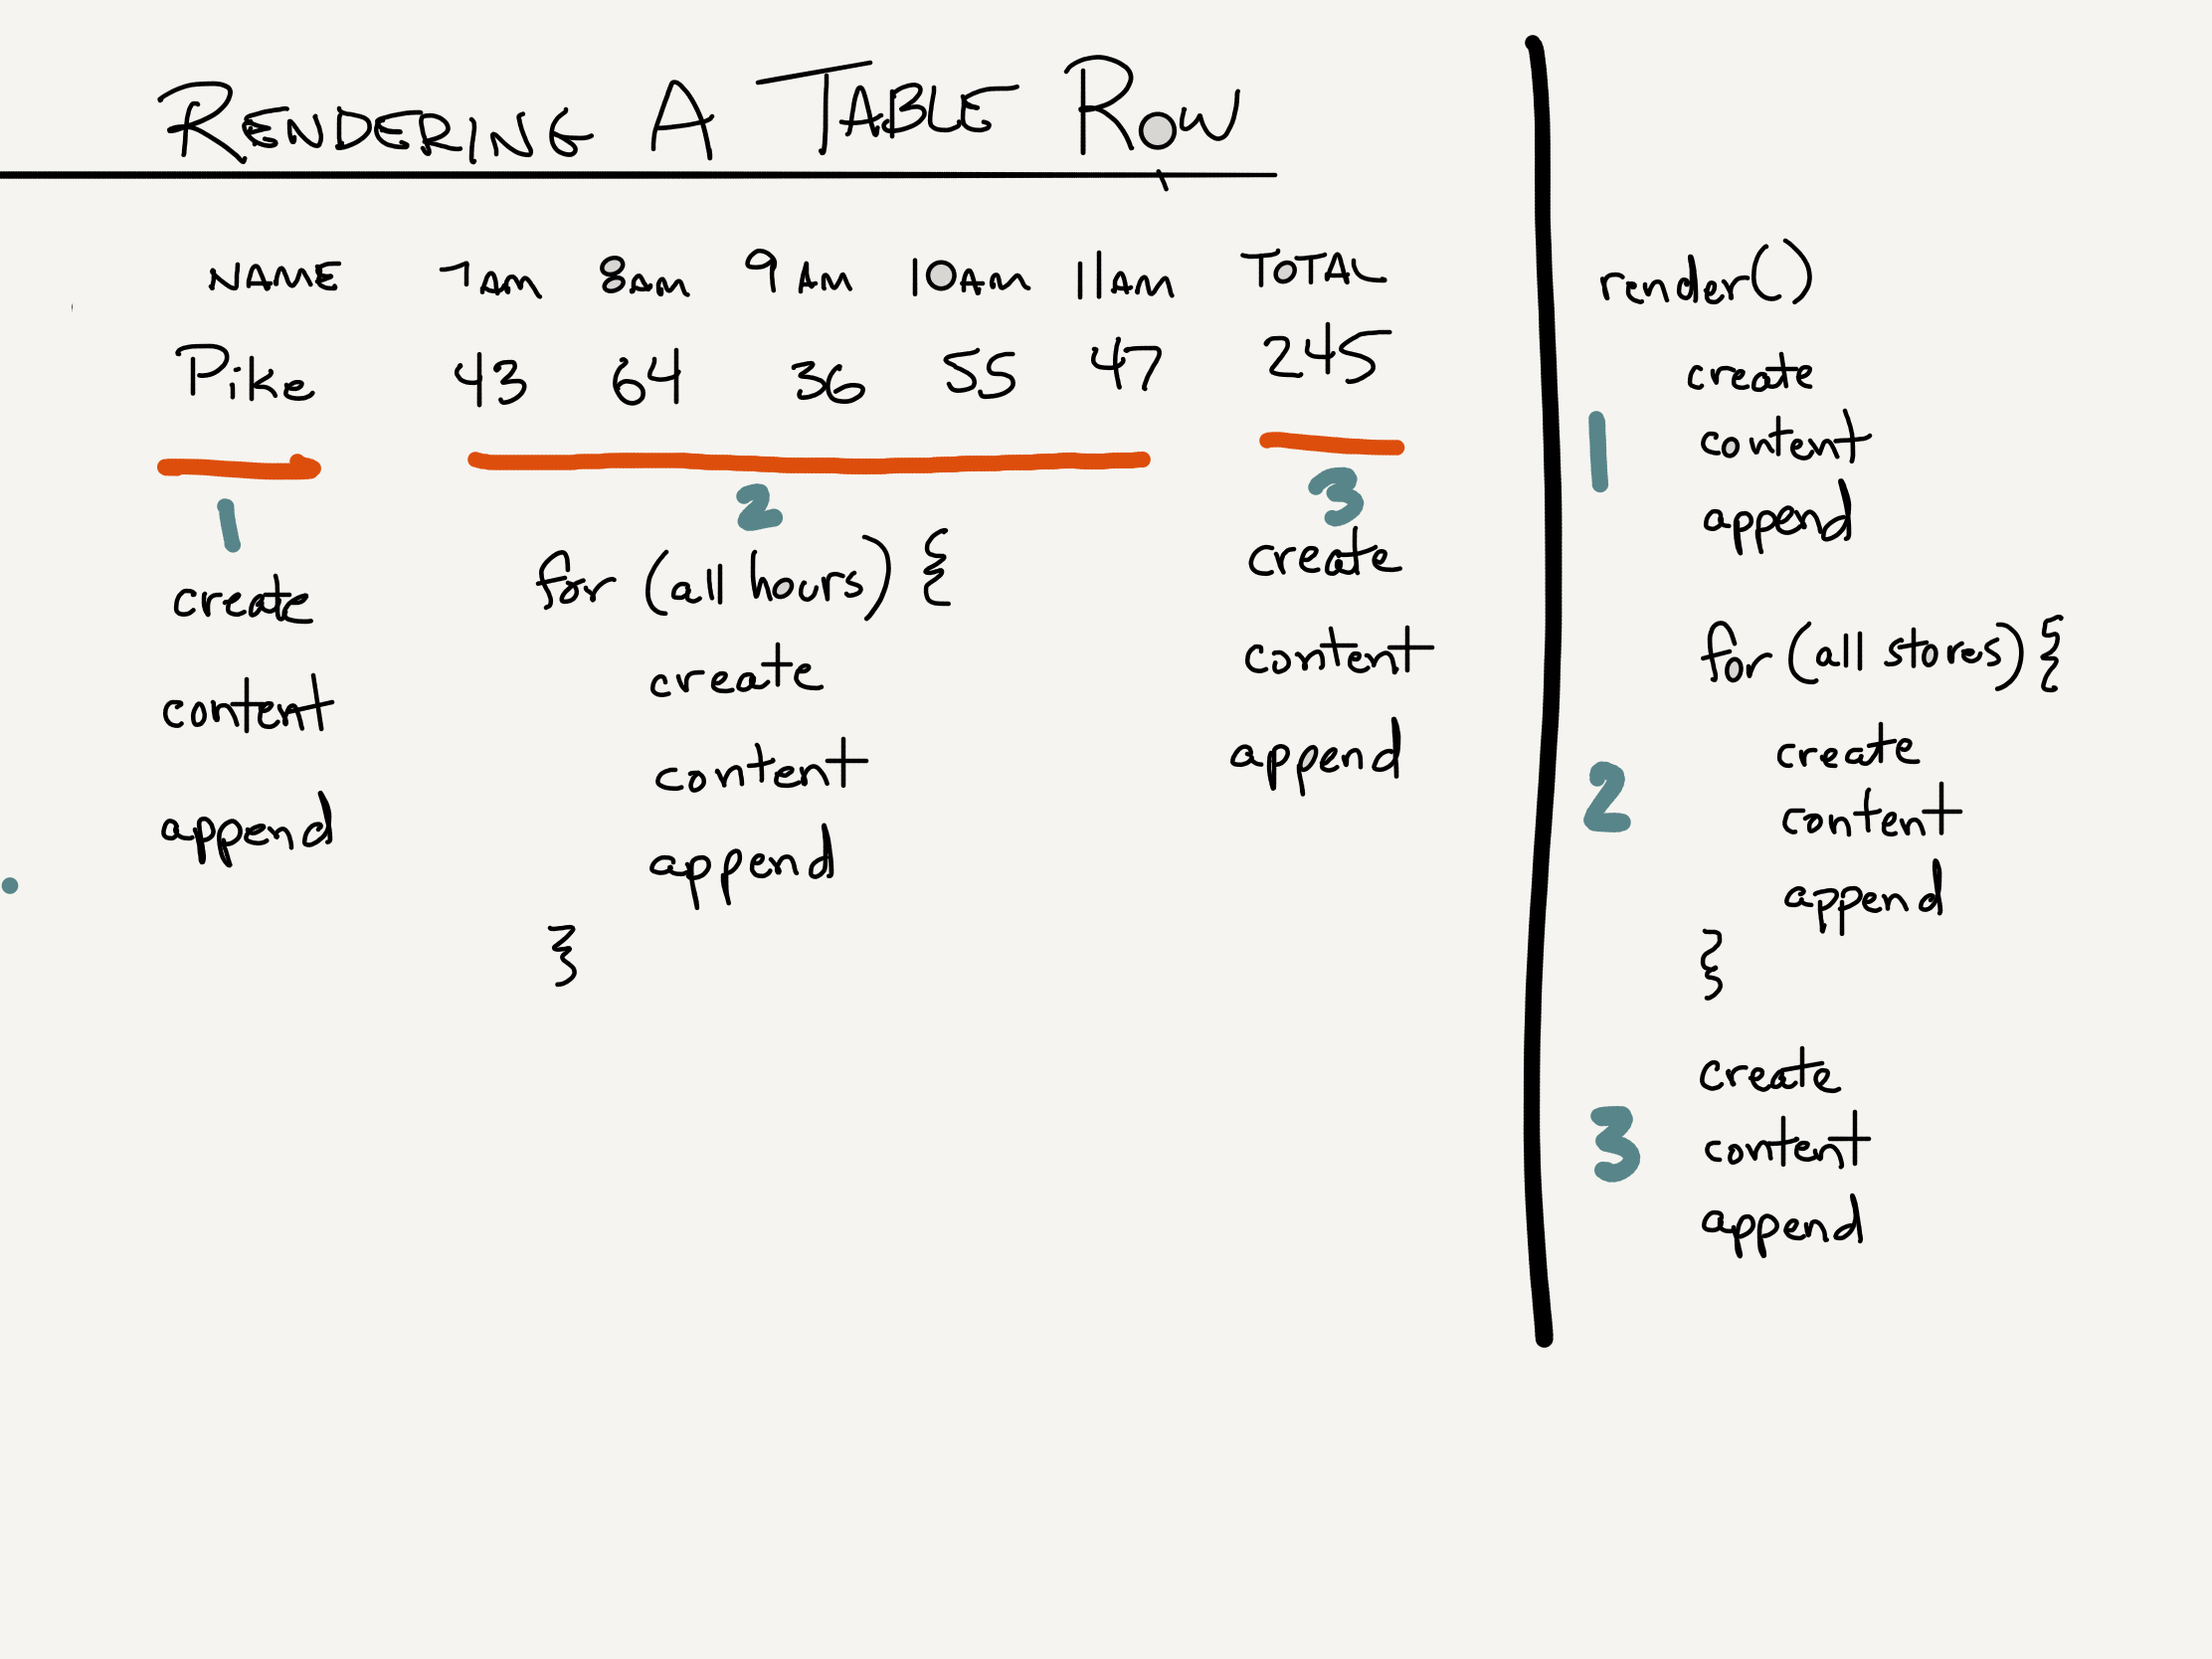 RENDERING A TABLE ROW
NAME 7AM 8AM 9AM 10AM 11AM TOTAL
Pike 43 64 36 55 47 245
1 2 3
create
content
append
for (all hours) {
create
content
append
}
create
content
append
render()
create
1 content
append
for (all stores) {
create
2 content
append
}
create
3 content
append